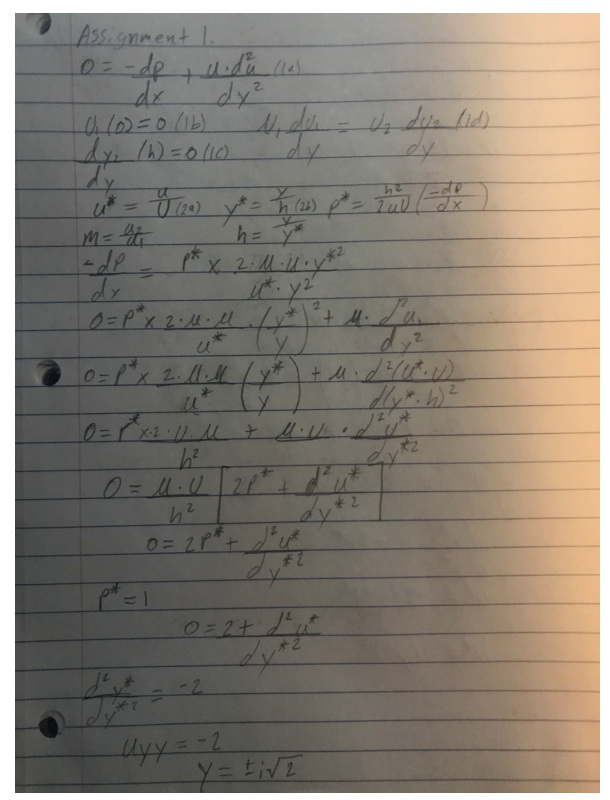 Assignment 1.
0 = -dp/dx + u·d²u/dy² (1a)
U₁(0) = 0 (1b) μ₁ du₁/dy = U₂ dy₂/dy (1d)
dy₂/dy (h) = 0 (1c)
u* = u/U (2a) y* = y/h (2b) P* = h²/2uU (-dp/dx)
m = u₂/u₁ h = y/y*
-dp/dx = P* x 2·μ·u·y*²/u*·y²
0 = P* x 2·μ·μ/u* · (y*/y)² + μ· d²u,/dy²
0 = P* x 2·μ·μ/u* (y*/y) + μ· d²(u*·U)/d(y*·h)²
0 = P* x·2·U·μ/h² + μ·U · d²u*/dy*²
0 = μ·U/h² [2P* + d²u*/dy*²]
0 = 2P* + d²u*/dy*²
P* = 1
0 = 2 + d²u*/dy*²
d²y*/dy*² = -2
uyy = -2
y = ±i√2